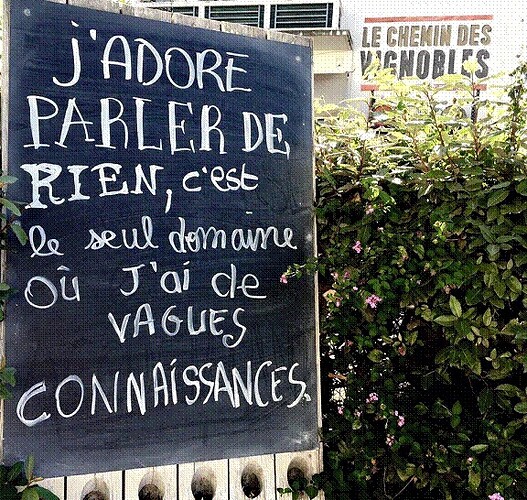 j'ADORE
PARLER DE
RIEN, c'est
le seul domaine
où J'ai de
VAGUES
CONNAiSSANCES.
LE CHEMIN DES
VIGNOBLES